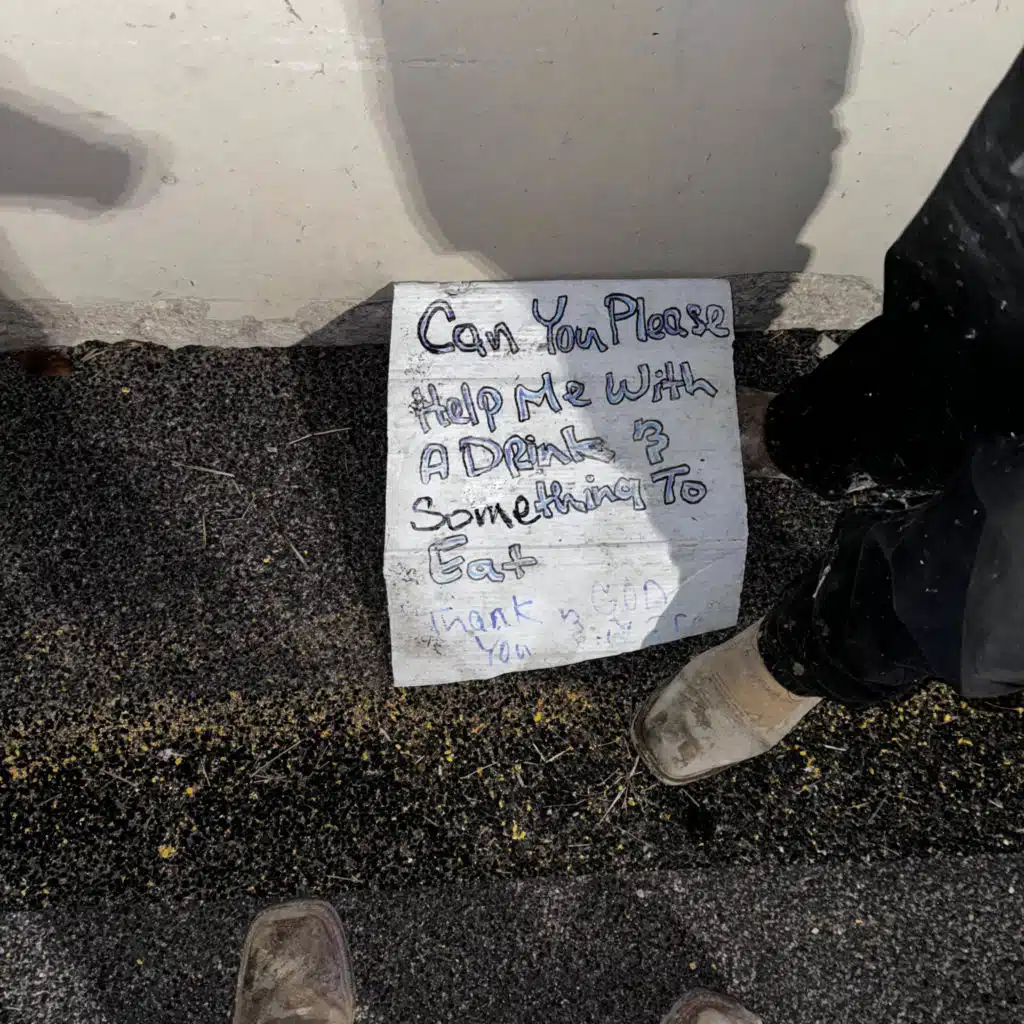 Can You Please
Help Me With
A DRink &
Something To
Eat
Thank & GOD
You